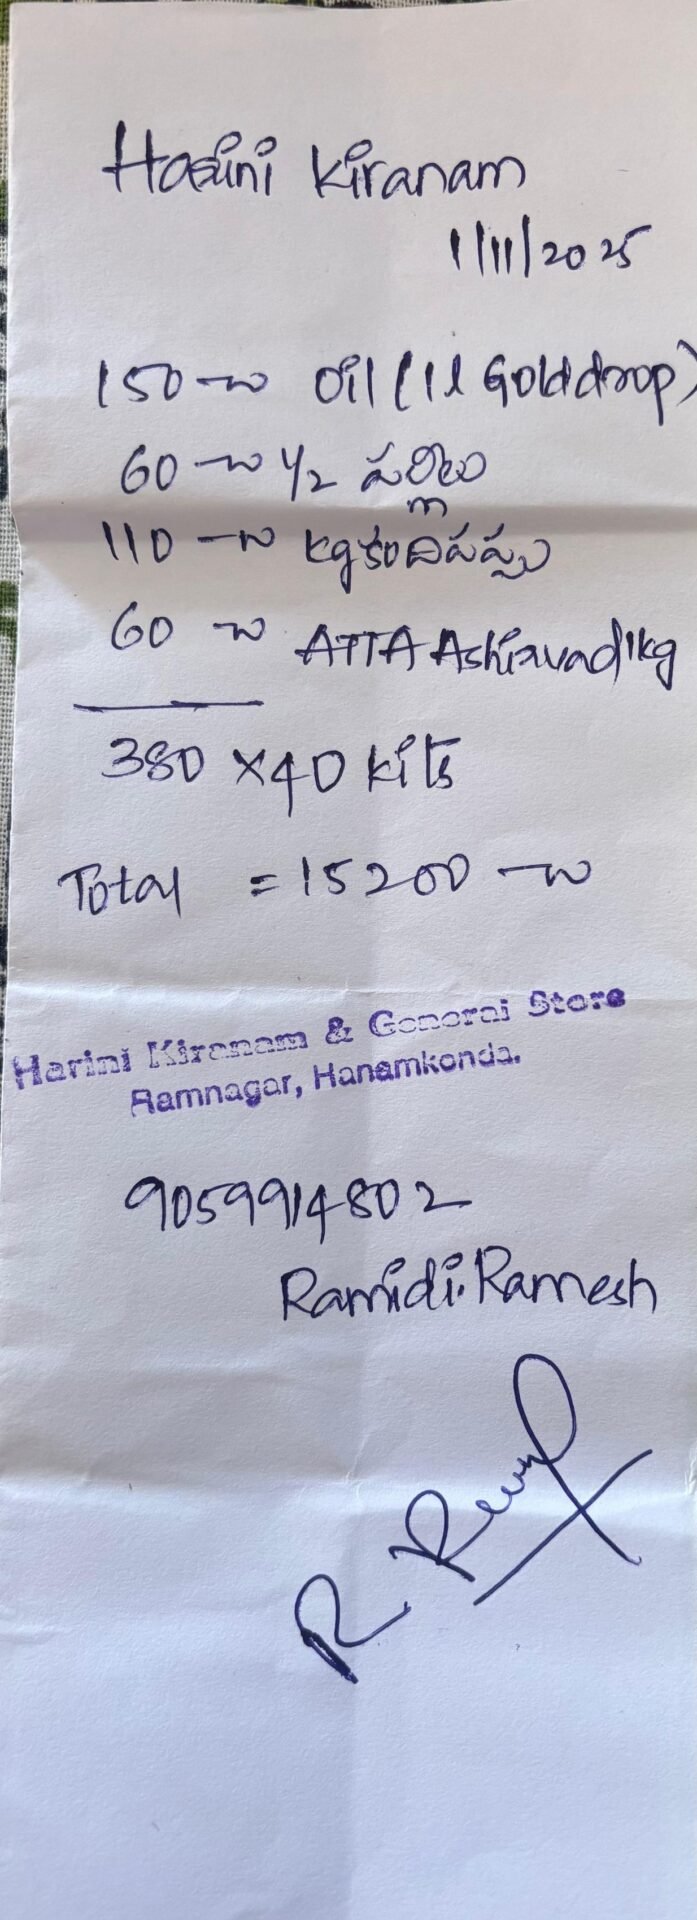 Hasini Kiranam
1/11/2025
150-00 Oil (1l Golddrop)
60-00 1/2 పల్లీలు
110-00 kg కందిపప్పు
60-00 ATTA Ashirvad 1kg
380 x 40 kits
Total = 15200-00
Harini Kiranam & General Store
Ramnagar, Hanamkonda.
9059914802
Ramidi. Ramesh